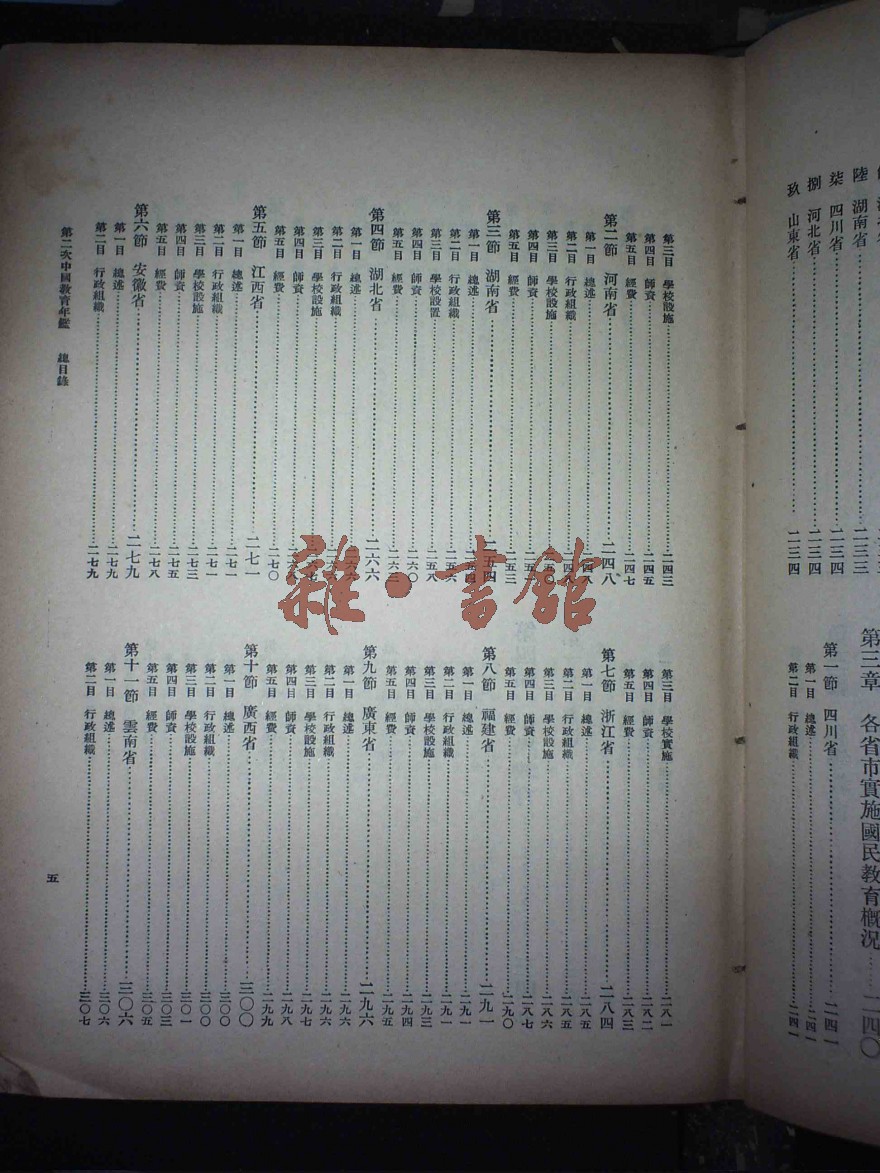 陸 湖南省 二三三
柒 四川省 二三四
捌 河北省 二三四
玖 山東省 二三四
第三章 各省市實施國民教育概況 二四〇
第一節 四川省 二四一
第一目 總述 二四一
第二目 行政組織 二四一
第三目 學校設施 二四三
第四目 師資 二四五
第五目 經費 二四七
第二節 河南省 二四八
第一目 總述 二四八
第二目 行政組織 二四八
第三目 學校設施 二五〇
第四目 師資 二五一
第五目 經費 二五三
第三節 湖南省 二五四
第一目 總述 二五四
第二目 行政組織 二五六
第三目 學校設置 二五八
第四目 師資 二六〇
第五目 經費 二六三
第四節 湖北省 二六六
第一目 總述 二六六
第二目 行政組織 二六六
第三目 學校設施 二六七
第四目 師資 二六八
第五目 經費 二七〇
第五節 江西省 二七一
第一目 總述 二七一
第二目 行政組織 二七一
第三目 學校設施 二七三
第四目 師資 二七五
第五目 經費 二七八
第六節 安徽省 二七九
第一目 總述 二七九
第二目 行政組織 二七九
第三目 學校實施 二八一
第四目 師資 二八二
第五目 經費 二八三
第七節 浙江省 二八四
第一目 總述 二八五
第二目 行政組織 二八五
第三目 學校設施 二八六
第四目 師資 二八七
第五目 經費 二九〇
第八節 福建省 二九一
第一目 總述 二九一
第二目 行政組織 二九一
第三目 學校設施 二九三
第四目 師資 二九四
第五目 經費 二九五
第九節 廣東省 二九六
第一目 總述 二九六
第二目 行政組織 二九六
第三目 學校設施 二九七
第四目 師資 二九八
第五目 經費 二九九
第十節 廣西省 三〇〇
第一目 總述 三〇〇
第二目 行政組織 三〇〇
第三目 學校設施 三〇一
第四目 師資 三〇三
第五目 經費 三〇五
第十一節 雲南省 三〇六
第一目 總述 三〇六
第二目 行政組織 三〇七
第二次中國教育年鑑 總目錄
五
雜·書館